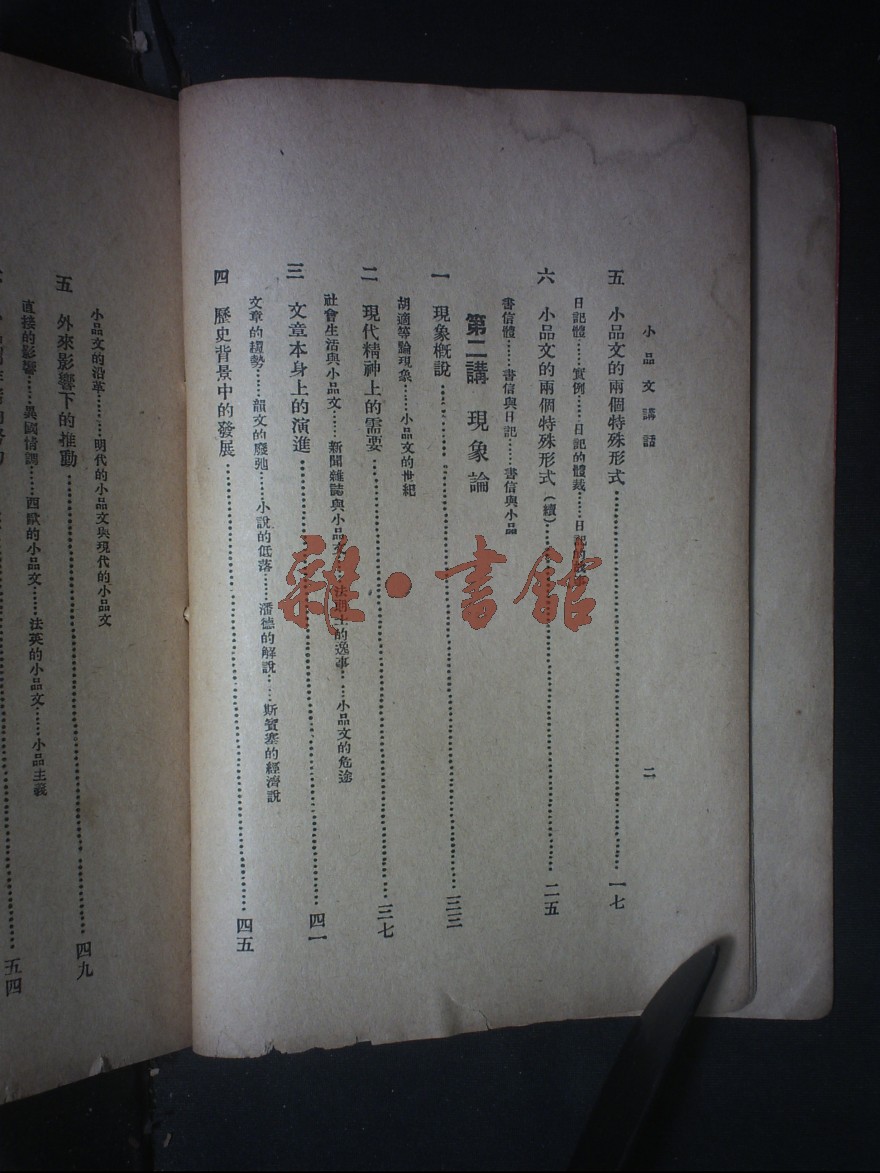 小品文講話
二
五　小品文的兩個特殊形式……一七
日記體……實例……日記的體裁……日記的
六　小品文的兩個特殊形式（續）……二五
書信體……書信與日記……書信與小品
第二講　現象論
一　現象概說……三三
胡適等論現象……小品文的世紀
二　現代精神上的需要……三七
社會生活與小品文……新聞雜誌與小品文……法朗士的逸事……小品文的危途
三　文章本身上的演進……四一
文章的趨勢……韻文的廢弛……小說的低落……潘德的解說……斯賓塞的經濟說
四　歷史背景中的發展……四五
小品文的沿革……明代的小品文與現代的小品文
五　外來影響下的推動……四九
直接的影響……異國情調……西歐的小品文……法英的小品文……小品主義
五四
雜·書館